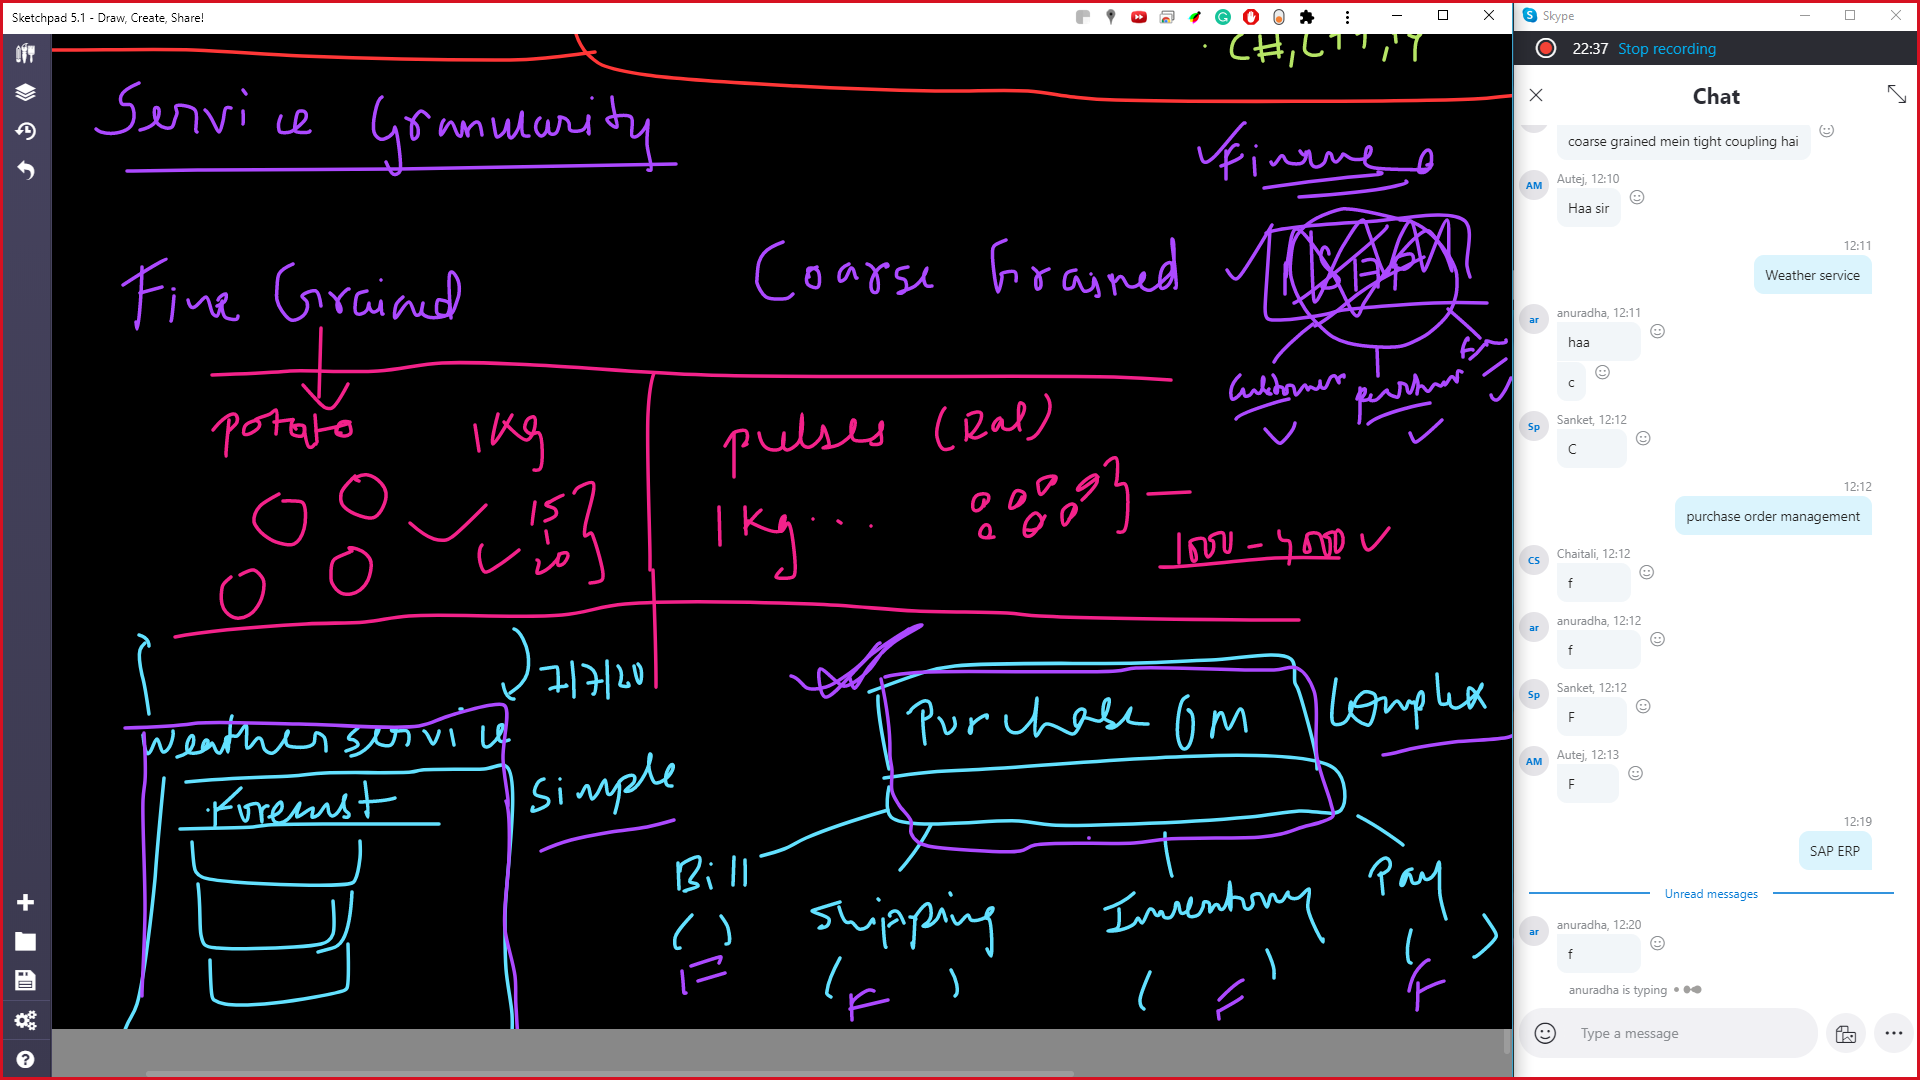 Sketchpad 5.1 - Draw, Create, Share!
Skype
22:37 Stop recording
Chat
Service Granularity
Finance
Fine Grained
Coarse Grained
Customer
potato
1Kg
pulses (Dal)
15
20
1Kg...
1000 - 4000
7/7/20
weather service
Forecast
Simple
Purchase OM
Complex
Bill
Shipping
Inventory
Pay
F
F
F
coarse grained mein tight coupling hai
AM
Autej, 12:10
Haa sir
12:11
Weather service
ar
anuradha, 12:11
haa
c
Sp
Sanket, 12:12
C
12:12
purchase order management
CS
Chaitali, 12:12
f
ar
anuradha, 12:12
f
Sp
Sanket, 12:12
F
AM
Autej, 12:13
F
12:19
SAP ERP
Unread messages
ar
anuradha, 12:20
f
anuradha is typing
Type a message